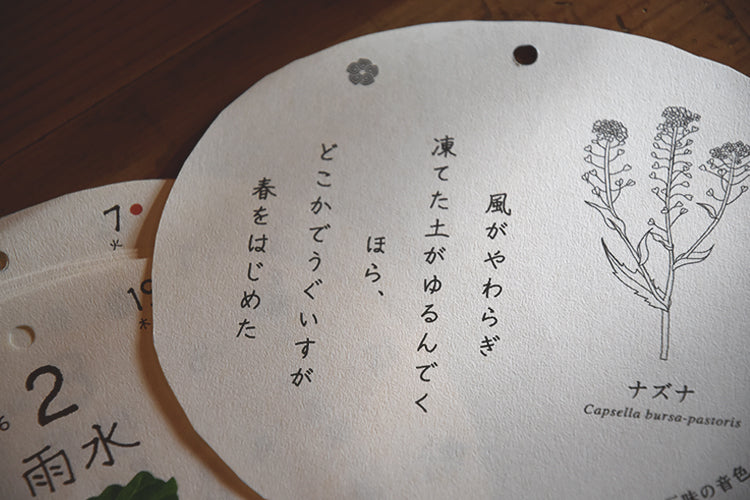 風がやわらぎ
凍てた土がゆるんでく
ほら、
どこかでうぐいすが
春をはじめた
ナズナ
Capsella bursa-pastoris
の音色
7
火
19
木
2
雨水